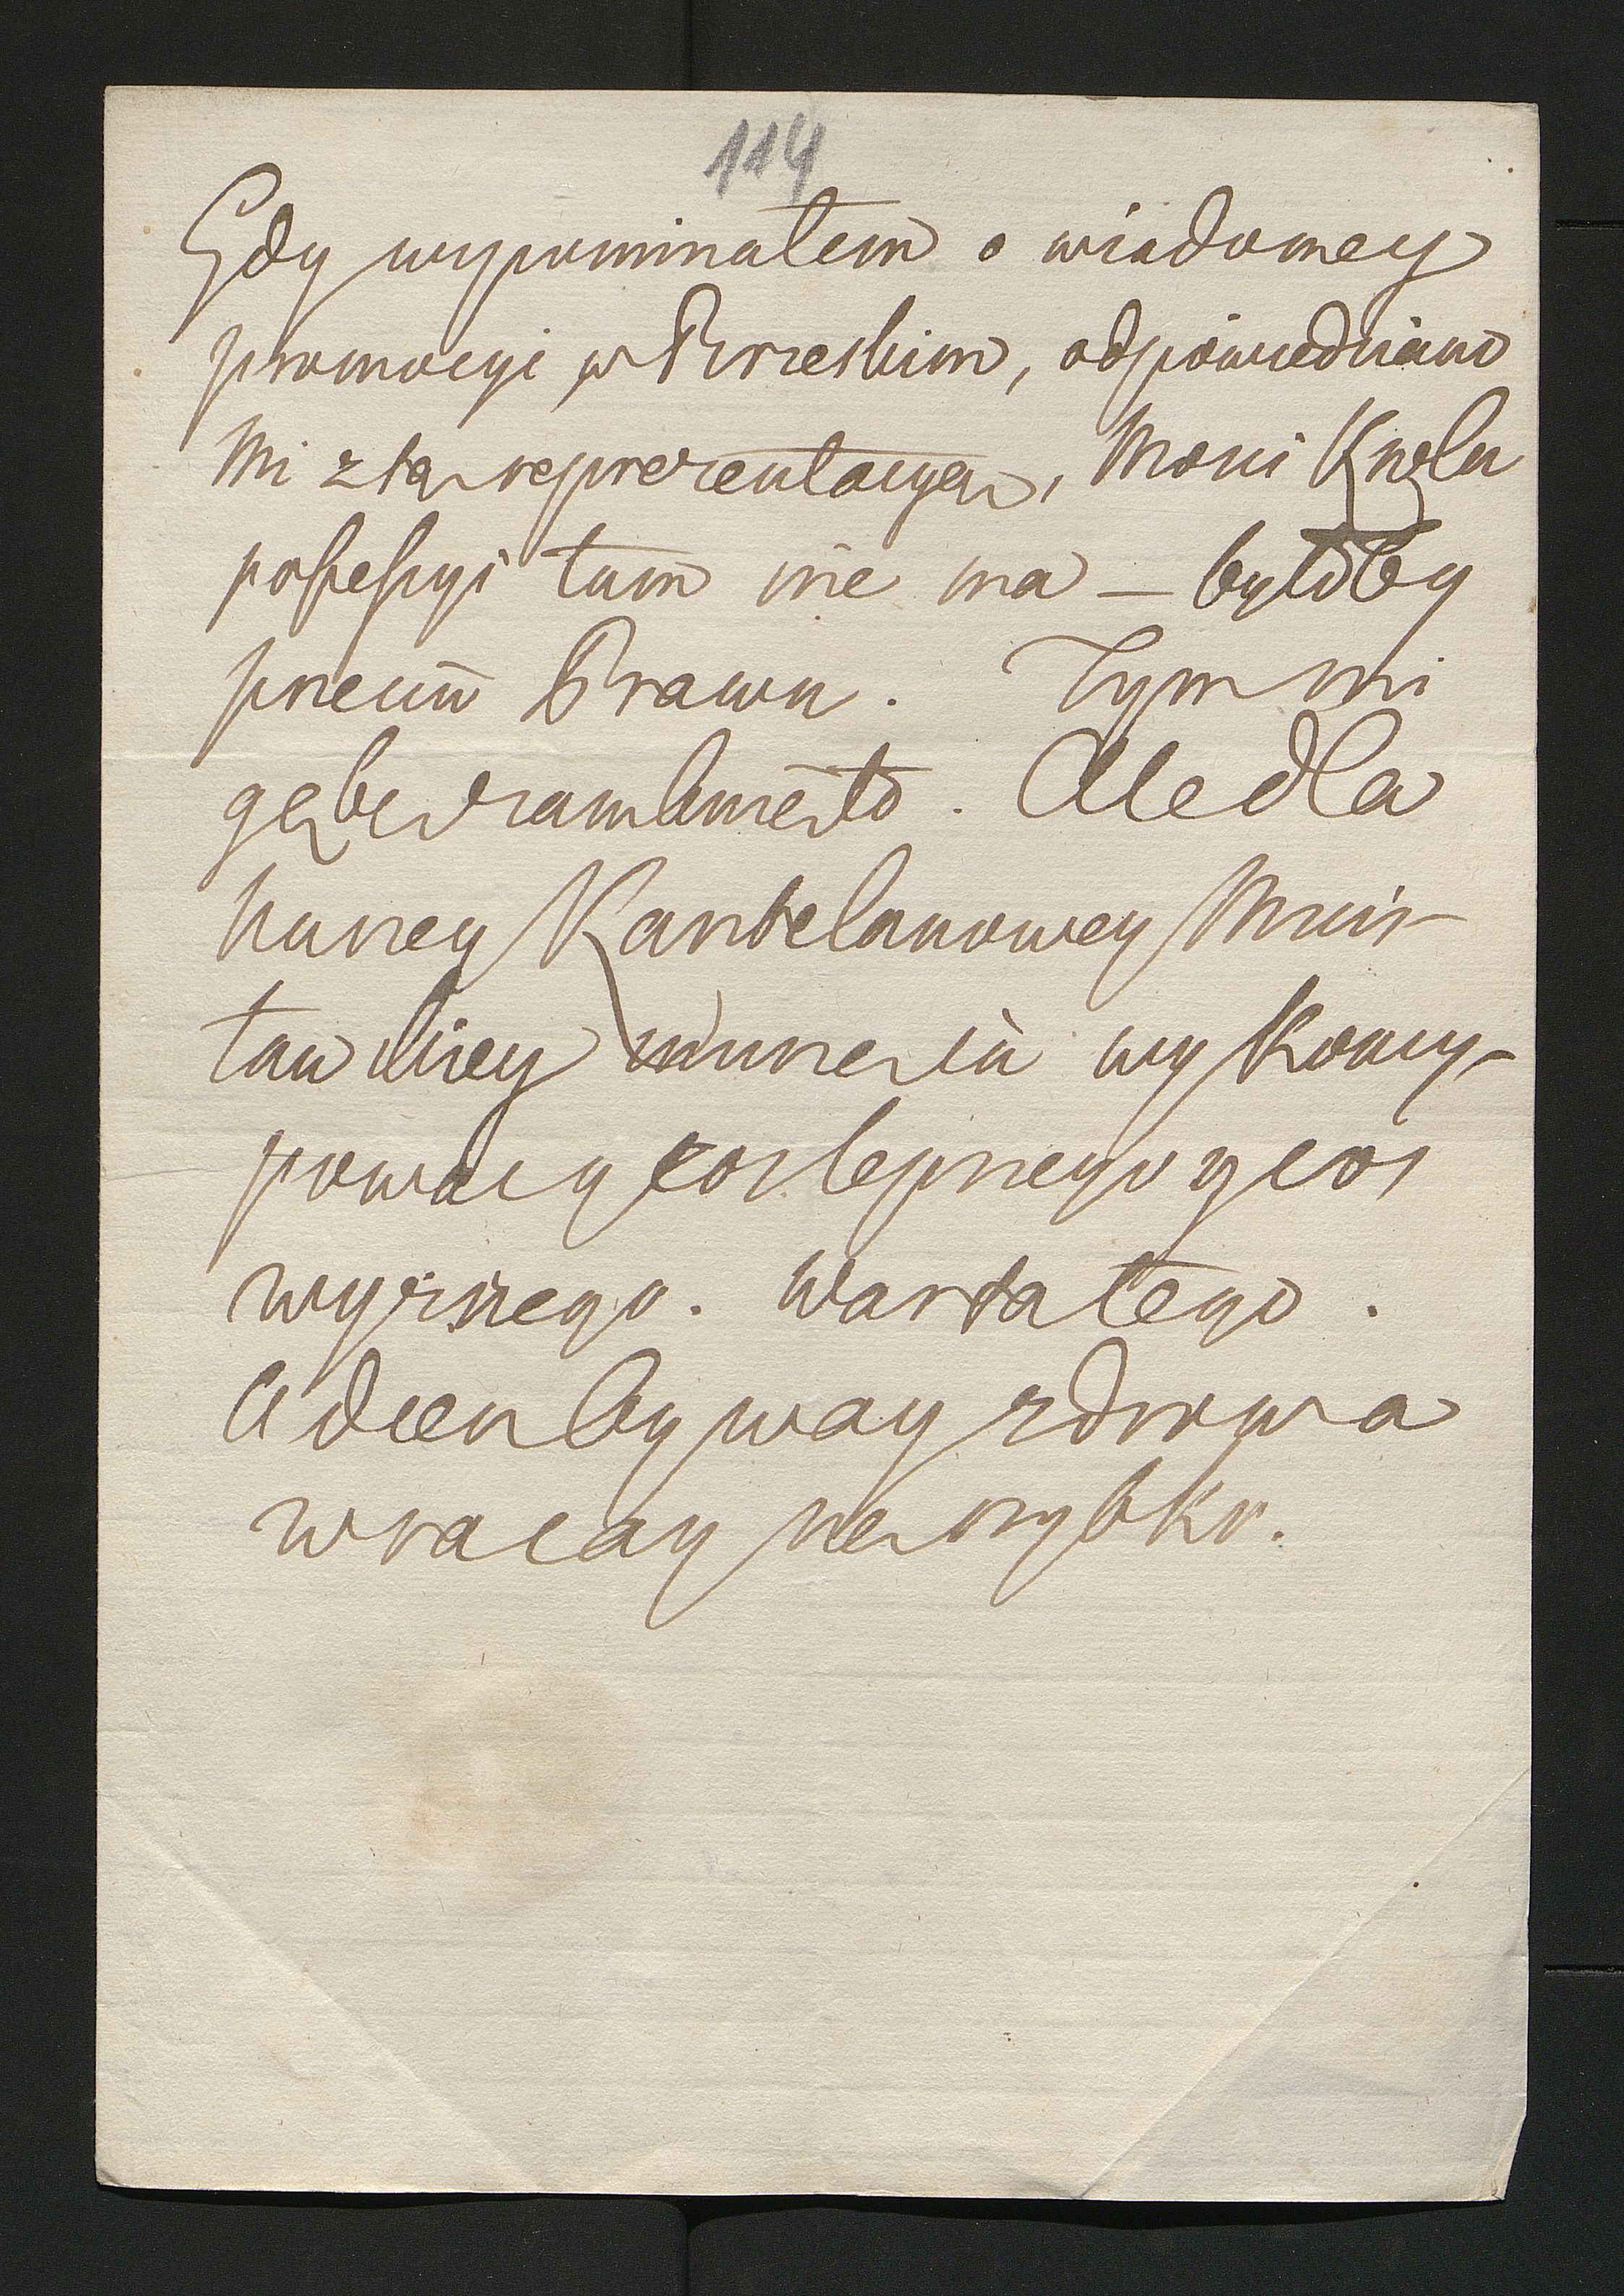 114
Gdy wypominałem o wiadomey
promocyi w Brzeskim, odpowiedziano
mi z tą reprezentacyą, Mości Królu
possessyi tam nie ma – byłoby
przeciw Prawu. Tym mi
gębę zamknięto. Ale dla
Paney Kasztelanowey Mści-
sławskiey musze się wykoncy-
powacy coś lepszego y coś
wyższego. Warta tego.
Adieu bywaj zdrowa
wracay ne szybko.